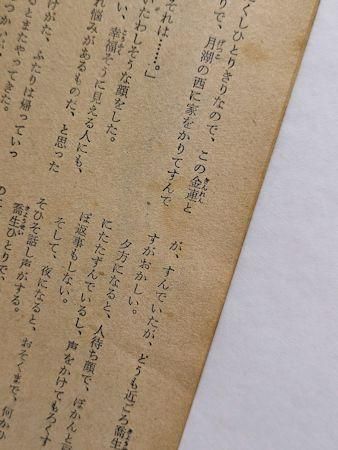 くしひとりきりなので、この金蓮と
りで、月湖の西に家をかりてすんで
それは……。」
いたわしそうな顔をした。
い、幸福そうに見える人にも、
れ悩みがあるものだ、と思った
けがた、ふたりは帰っていっ
るとまたやってきた。
が、すんでいたが、どうも近ごろ喬生
すがおかしい。
夕方になると、人待ち顔で、ぽかんと
にたたずんでいるし、声をかけてもろくす
ぽ返事もしない。
そして、夜になると、おそくまで、何かひ
そひそ話し声がする。
喬生ひとりで、